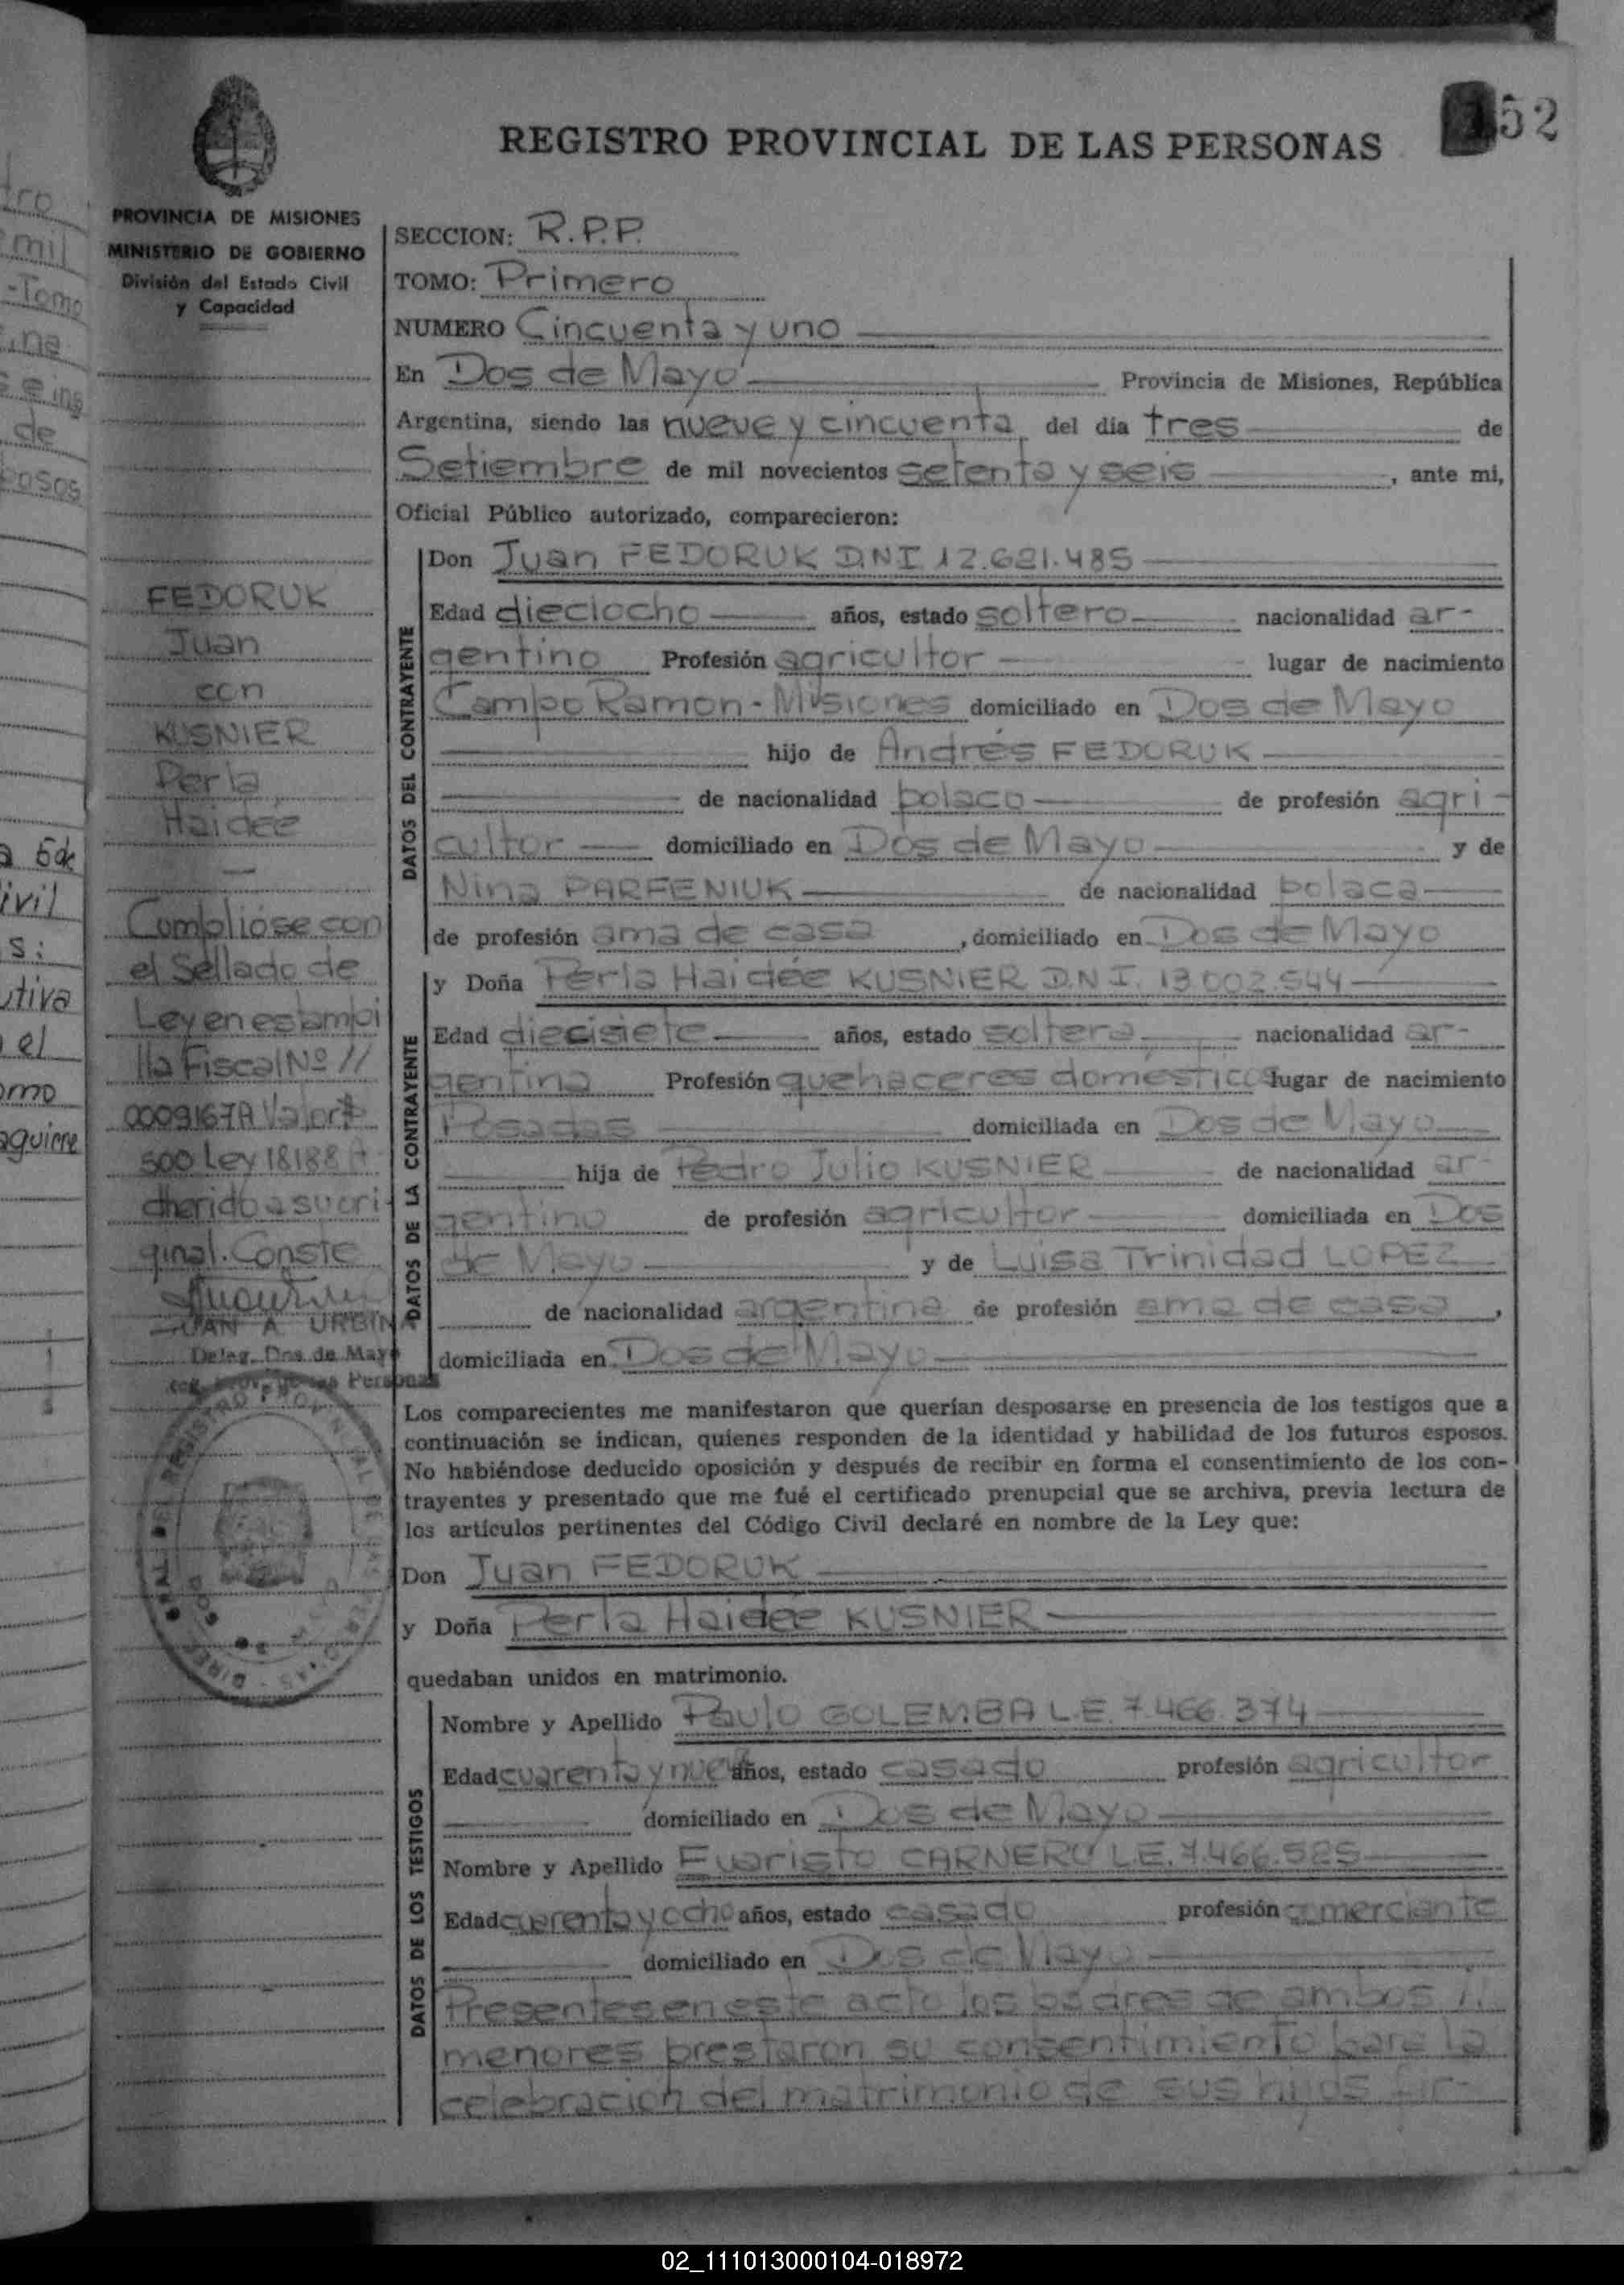 REGISTRO PROVINCIAL DE LAS PERSONAS
52
PROVINCIA DE MISIONES
MINISTERIO DE GOBIERNO
División del Estado Civil
y Capacidad
SECCION: R.P.P.
TOMO: Primero
NUMERO Cincuenta y uno
En Dos de Mayo Provincia de Misiones, República
Argentina, siendo las nueve y cincuenta del día tres de
Setiembre de mil novecientos setenta y seis, ante mi,
Oficial Público autorizado, comparecieron:
DATOS DEL CONTRAYENTE
Don Juan FEDORUK D.N.I 12.621.485
Edad dieciocho años, estado soltero nacionalidad ar-
gentino Profesión agricultor lugar de nacimiento
Campo Ramon - Misiones domiciliado en Dos de Mayo
hijo de Andrés FEDORUK
de nacionalidad polaco de profesión agri-
cultor domiciliado en Dos de Mayo y de
Nina PARFENIUK de nacionalidad polaca
de profesión ama de casa, domiciliado en Dos de Mayo
DATOS DE LA CONTRAYENTE
y Doña Perla Haidée KUSNIER D.N.I. 13.002.544
Edad diecisiete años, estado soltera nacionalidad ar-
gentina Profesión quehaceres domésticos lugar de nacimiento
Posadas domiciliada en Dos de Mayo
hija de Pedro Julio KUSNIER de nacionalidad ar-
gentino de profesión agricultor domiciliada en Dos
de Mayo y de Luisa Trinidad LOPEZ
de nacionalidad argentina de profesión ama de casa,
domiciliada en Dos de Mayo
Los comparecientes me manifestaron que querían desposarse en presencia de los testigos que a
continuación se indican, quienes responden de la identidad y habilidad de los futuros esposos.
No habiéndose deducido oposición y después de recibir en forma el consentimiento de los con-
trayentes y presentado que me fué el certificado prenupcial que se archiva, previa lectura de
los artículos pertinentes del Código Civil declaré en nombre de la Ley que:
Don Juan FEDORUK
y Doña Perla Haidée KUSNIER
quedaban unidos en matrimonio.
DATOS DE LOS TESTIGOS
Nombre y Apellido Paulo GOLEMBA L.E. 7.466.374
Edad cuarenta y nueve años, estado casado profesión agricultor
domiciliado en Dos de Mayo
Nombre y Apellido Evaristo CARNERO L.E. 7.466.585
Edad cuarenta y ocho años, estado casado profesión comerciante
domiciliado en Dos de Mayo
Presentes en este acto los padres de ambos
menores prestaron su consentimiento para la
celebración del matrimonio de sus hijos fir-
FEDORUK
Juan
con
KUSNIER
Perla
Haidée
Complióse con
el Sellado de
Ley en estampi
lla Fiscal Nº //
0009167A Valor $
500 Ley 18188 A
dherido a su ori
ginal. Conste
JUAN A URBINA
Deleg. Dos de Mayo
02_111013000104-018972